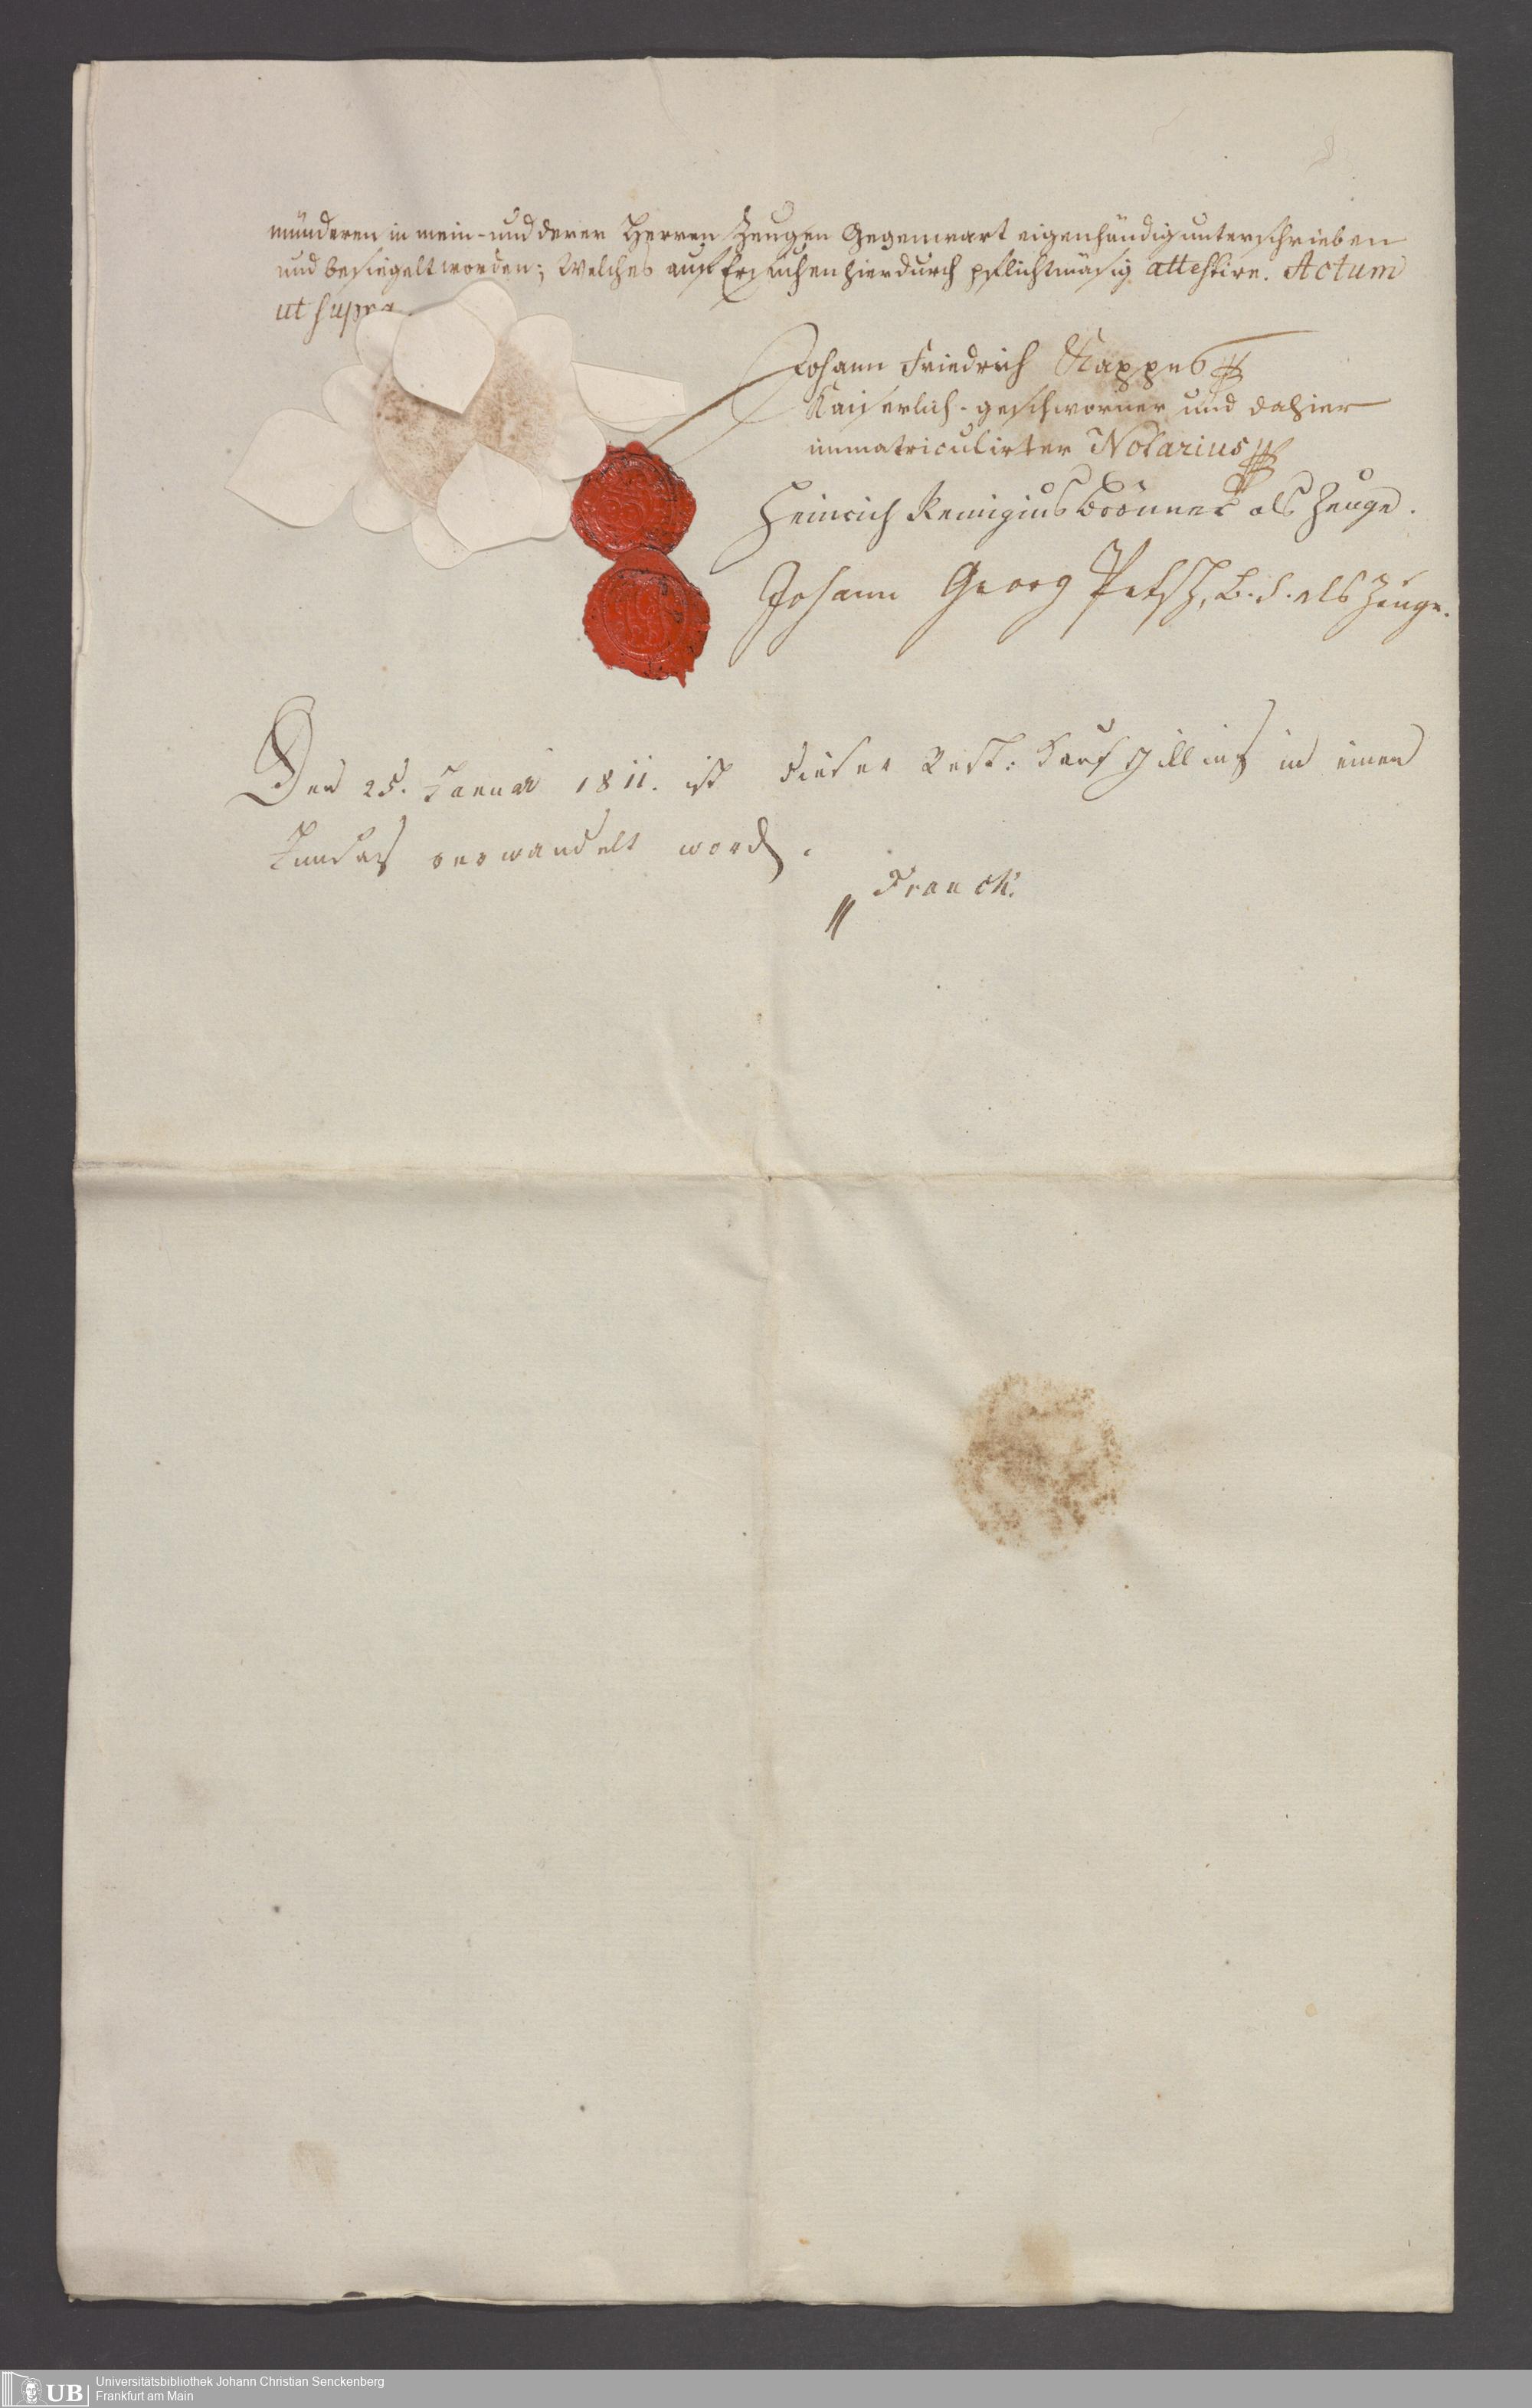 münderen in mein- und derer Herren Zeugen Gegenwart eigenhändig unterschrieben
und besiegelt worden; Welches auf Ersuchen hierdurch pflichtmäsig attestire. Actum
ut supra.
Johann Friedrich Kappes
Kaiserlich-geschworner und dahier
immatriculirter Notarius
Heinrich Remigius Brönner als Zeuge.
Johann Georg Petsch, L. S. als Zeuge.
Den 25. Januar 1811. ist dieser Rest: Kaufschilling in einen
verwandelt word.
Franck.
Universitätsbibliothek Johann Christian Senckenberg
UB Frankfurt am Main